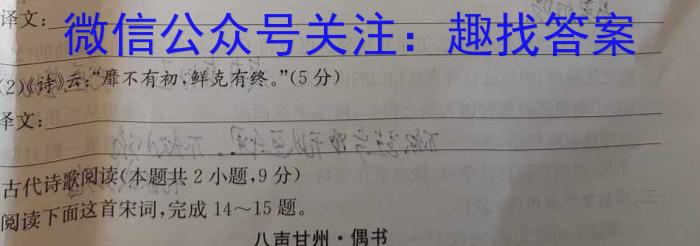 译文:
微信公众号关注：趣找答案
(2)《诗》云:“靡不有初,鲜克有终。”(5分)
译文:
古代诗歌阅读(本题共2小题,9分)
阅读下面这首宋词,完成14～15题。
八声甘州·偶书